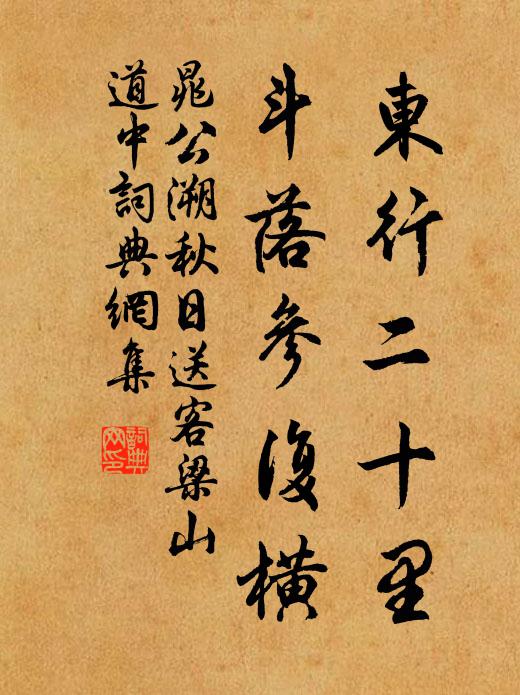 東行二十里
斗落參復橫
晁公溯秋日送客梁山
道中詞典網集
詞典
网印